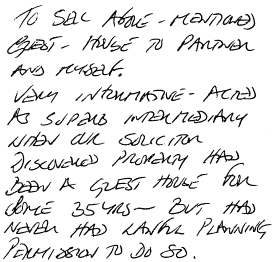 TO SELL ABOVE-MENTIONED
GUEST-HOUSE TO PARTNER
AND MYSELF.
VERY INFORMATIVE - ACTED
AS SUPERB INTERMEDIARY
WHEN OUR SOLICITOR
DISCOVERED PROPERTY HAD
BEEN A GUEST HOUSE FOR
SOME 35 YRS - BUT HAD
NEVER HAD LAWFUL PLANNING
PERMISSION TO DO SO.